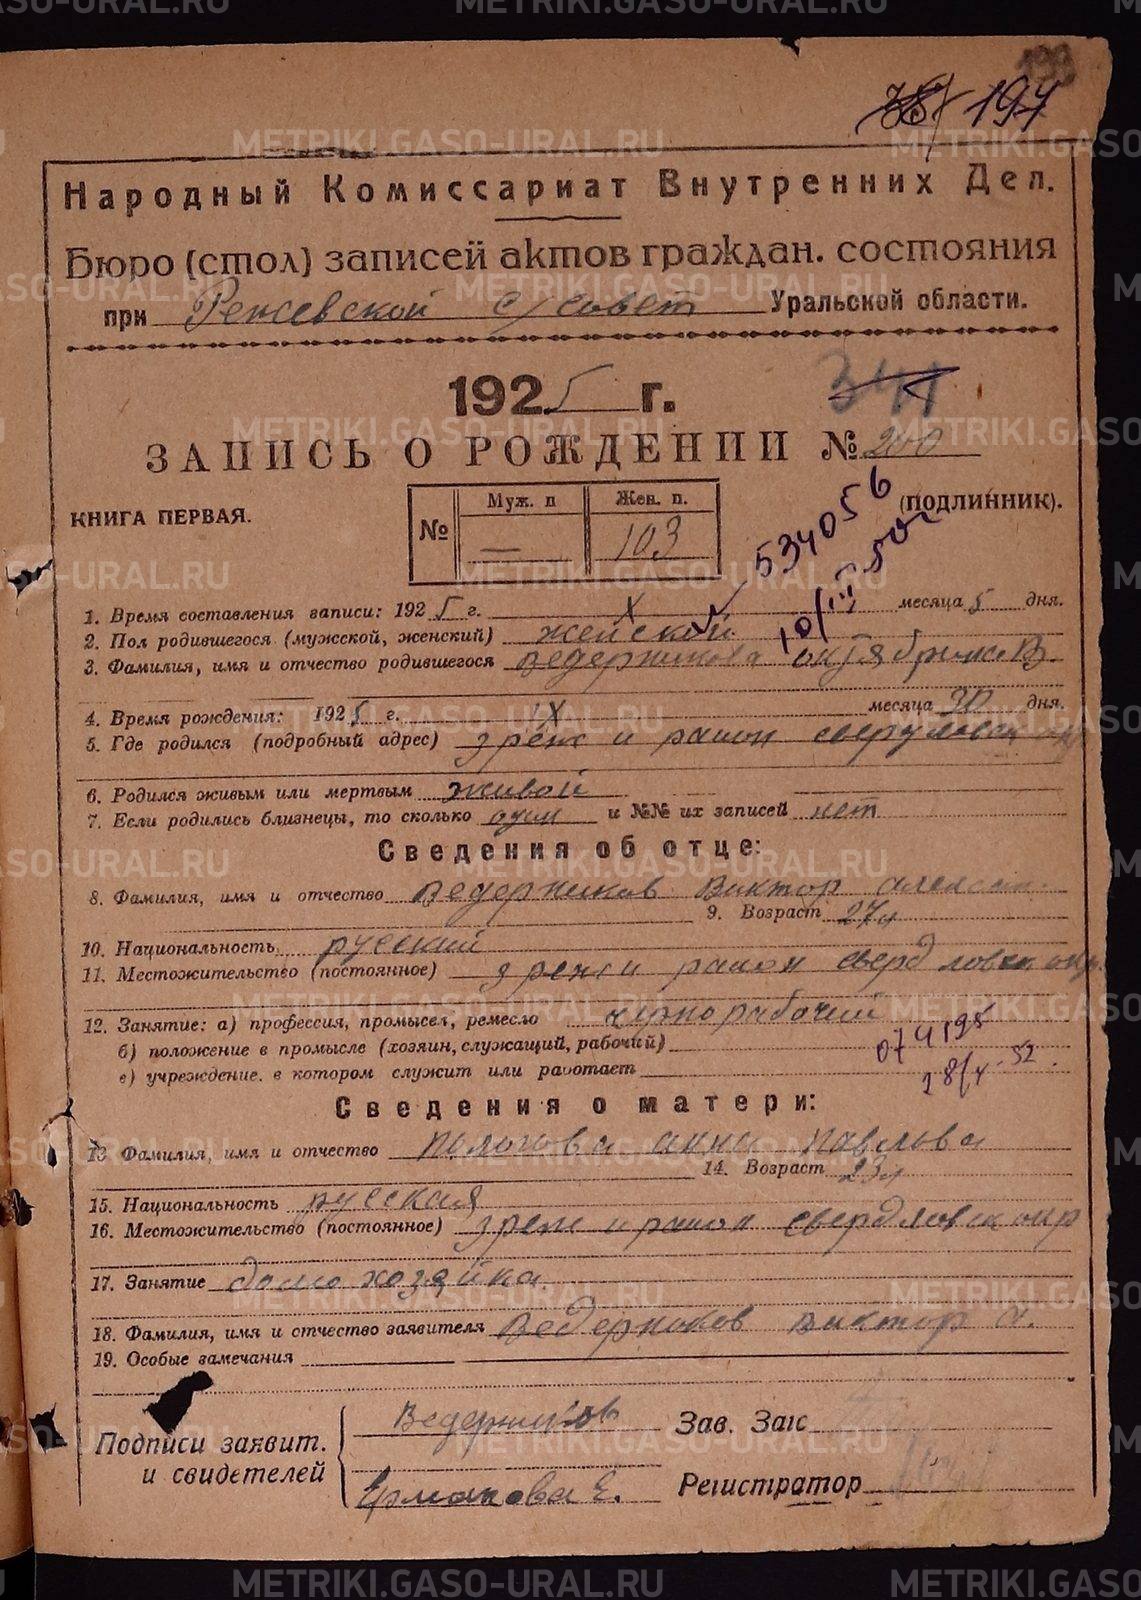 199
197
Народный Комиссариат Внутренних Дел.
Бюро (стол) записей актов граждан. состояния
при Режевской с/совет Уральской области.
1925 г. 341
ЗАПИСЬ О РОЖДЕНИИ № 200
КНИГА ПЕРВАЯ. (ПОДЛИННИК).
№ Муж. п Жен. п.
— 103
534056
1. Время составления записи: 1925 г. X месяца 5 дня.
2. Пол родившегося (мужской, женский) женской
3. Фамилия, имя и отчество родившегося Ведерникова октябрина В.
4. Время рождения: 1925 г. IX месяца 30 дня.
5. Где родился (подробный адрес) з реж и район свердловск окр
6. Родился живым или мертвым живой
7. Если родились близнецы, то сколько один и №№ их записей нет
Сведения об отце:
8. Фамилия, имя и отчество Ведерников Виктор алексан.
9. Возраст 27л
10. Национальность русский
11. Местожительство (постоянное) з реж и район свердловск окр.
12. Занятие: а) профессия, промысел, ремесло чернорабочий
б) положение в промысле (хозяин, служащий, рабочий)
в) учреждение. в котором служит или работает
074195
28/V-52.
Сведения о матери:
13 Фамилия, имя и отчество анна Павлова
14. Возраст 23л
15. Национальность русская
16. Местожительство (постоянное) з реж и район свердловск окр
17. Занятие домохозяйка
18. Фамилия, имя и отчество заявителя Ведерников виктор а.
19. Особые замечания
Подписи заявит. и свидетелей
Ведерников
Ермакова Е.
Зав. Загс
Регистратор
METRIKI.GASO-URAL.RU